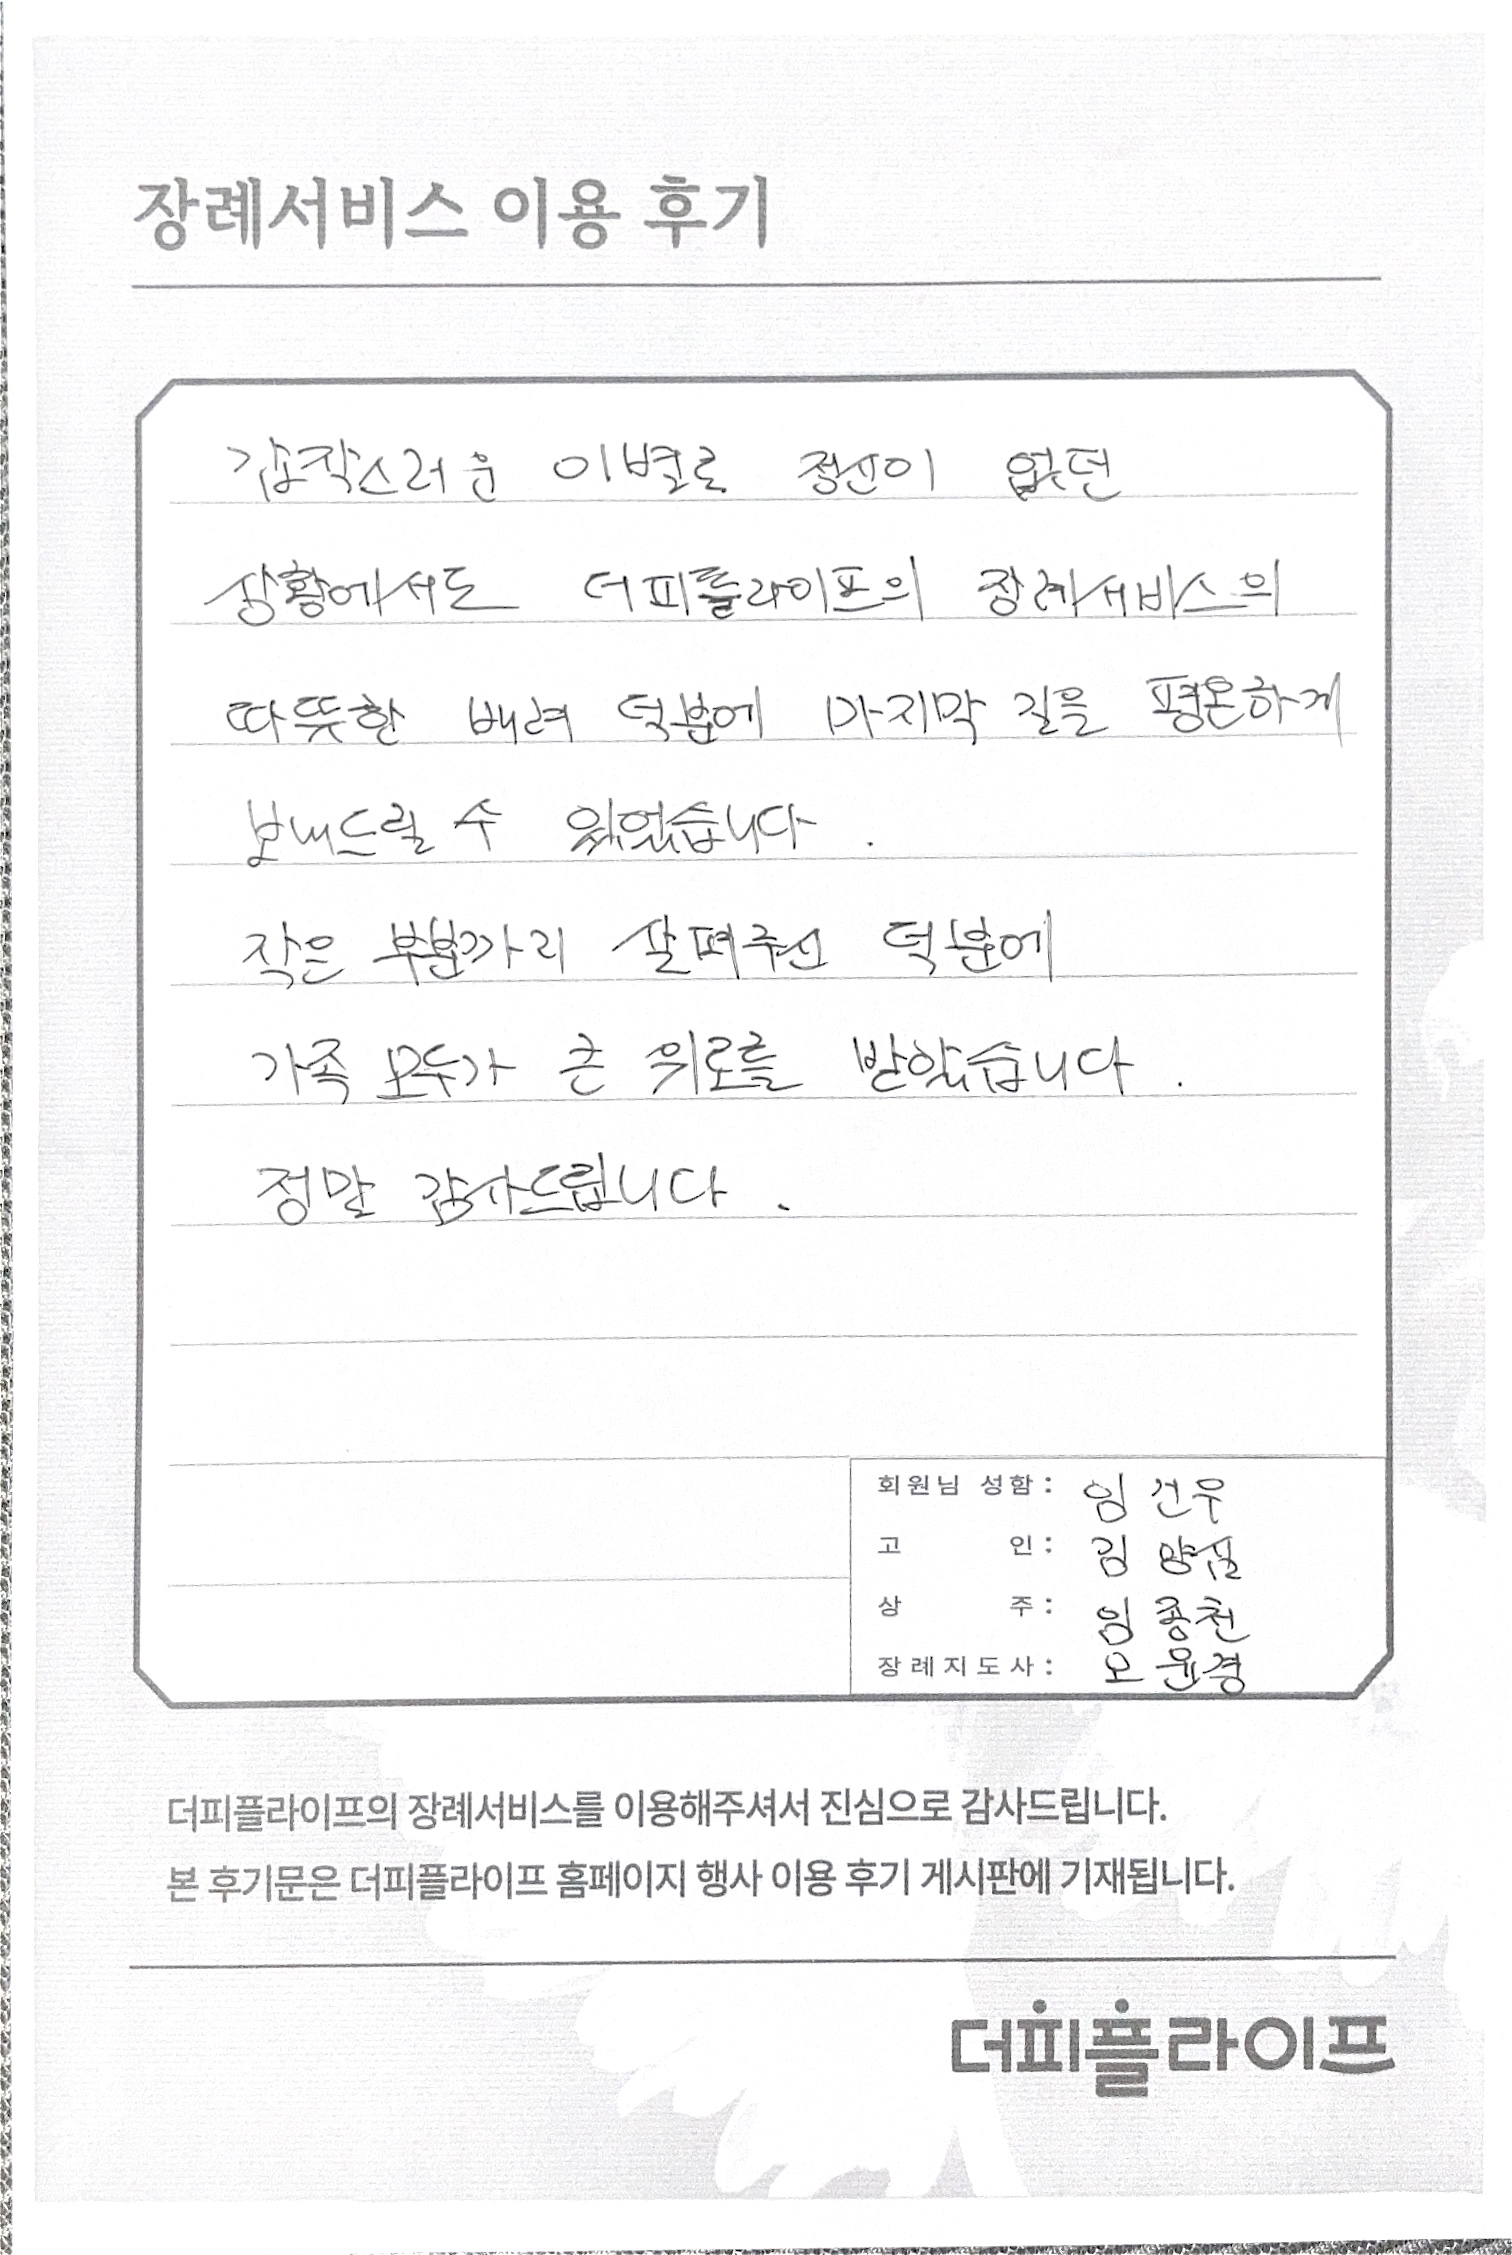 장례서비스 이용 후기
갑작스러운 이별로 정신이 없던
상황에서도 더피플라이프의 장례서비스의
따뜻한 배려 덕분에 마지막 길을 평온하게
보내드릴 수 있었습니다.
작은 부분까지 살펴주신 덕분에
가족 모두가 큰 위로를 받았습니다.
정말 감사드립니다.
회원님 성함: 임건우
고 인: 김양심
상 주: 임종천
장례지도사: 오윤경
더피플라이프의 장례서비스를 이용해주셔서 진심으로 감사드립니다.
본 후기문은 더피플라이프 홈페이지 행사 이용 후기 게시판에 기재됩니다.
더피플라이프